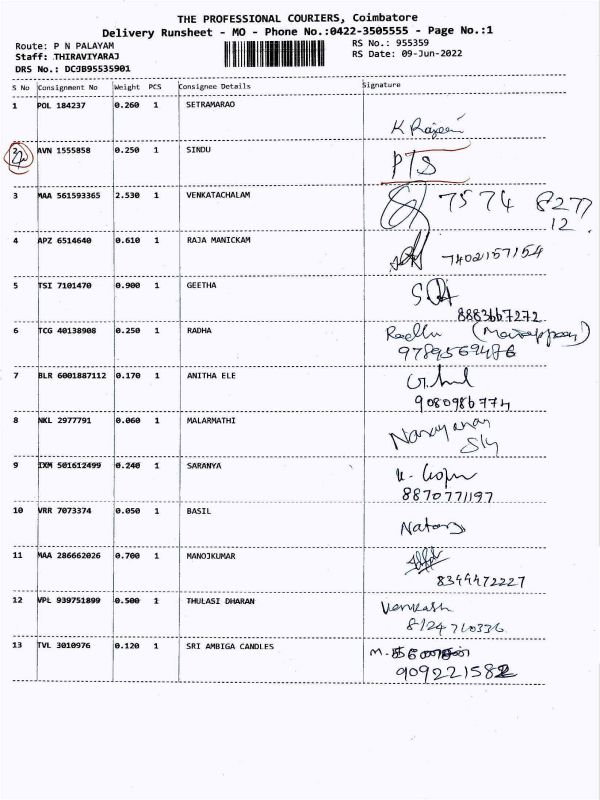 THE PROFESSIONAL COURIERS, Coimbatore
Delivery Runsheet - MO - Phone No.:0422-3505555 - Page No.:1
Route: P N PALAYAM RS No.: 955359
Staff: THIRAVIYARAJ RS Date: 09-Jun-2022
DRS No.: DCJB95535901
S No Consignment No Weight PCS Consignee Details Signature
1 POL 184237 0.260 1 SETRAMARAO
K
AVN 1555858 0.250 1 SINDU
PTS
3 MAA 561593365 2.530 1 VENKATACHALAM
7574 8277
12
4 APZ 6514640 0.610 1 RAJA MANICKAM
7402157154
5 TSI 7101470 0.900 1 GEETHA
8883667272
6 TCG 40138908 0.250 1 RADHA
Radha
9789569486
7 BLR 6001887112 0.170 1 ANITHA ELE
9080986774
8 NKL 2977791 0.060 1 MALARMATHI
Narayanan
9 IXM 501612499 0.240 1 SARANYA
8870771197
10 VRR 7073374 0.050 1 BASIL
11 MAA 286662026 0.700 1 MANOJKUMAR
8344472227
12 VPL 939751899 0.500 1 THULASI DHARAN
Venkash
8124710336
13 TVL 3010976 0.120 1 SRI AMBIGA CANDLES
M.